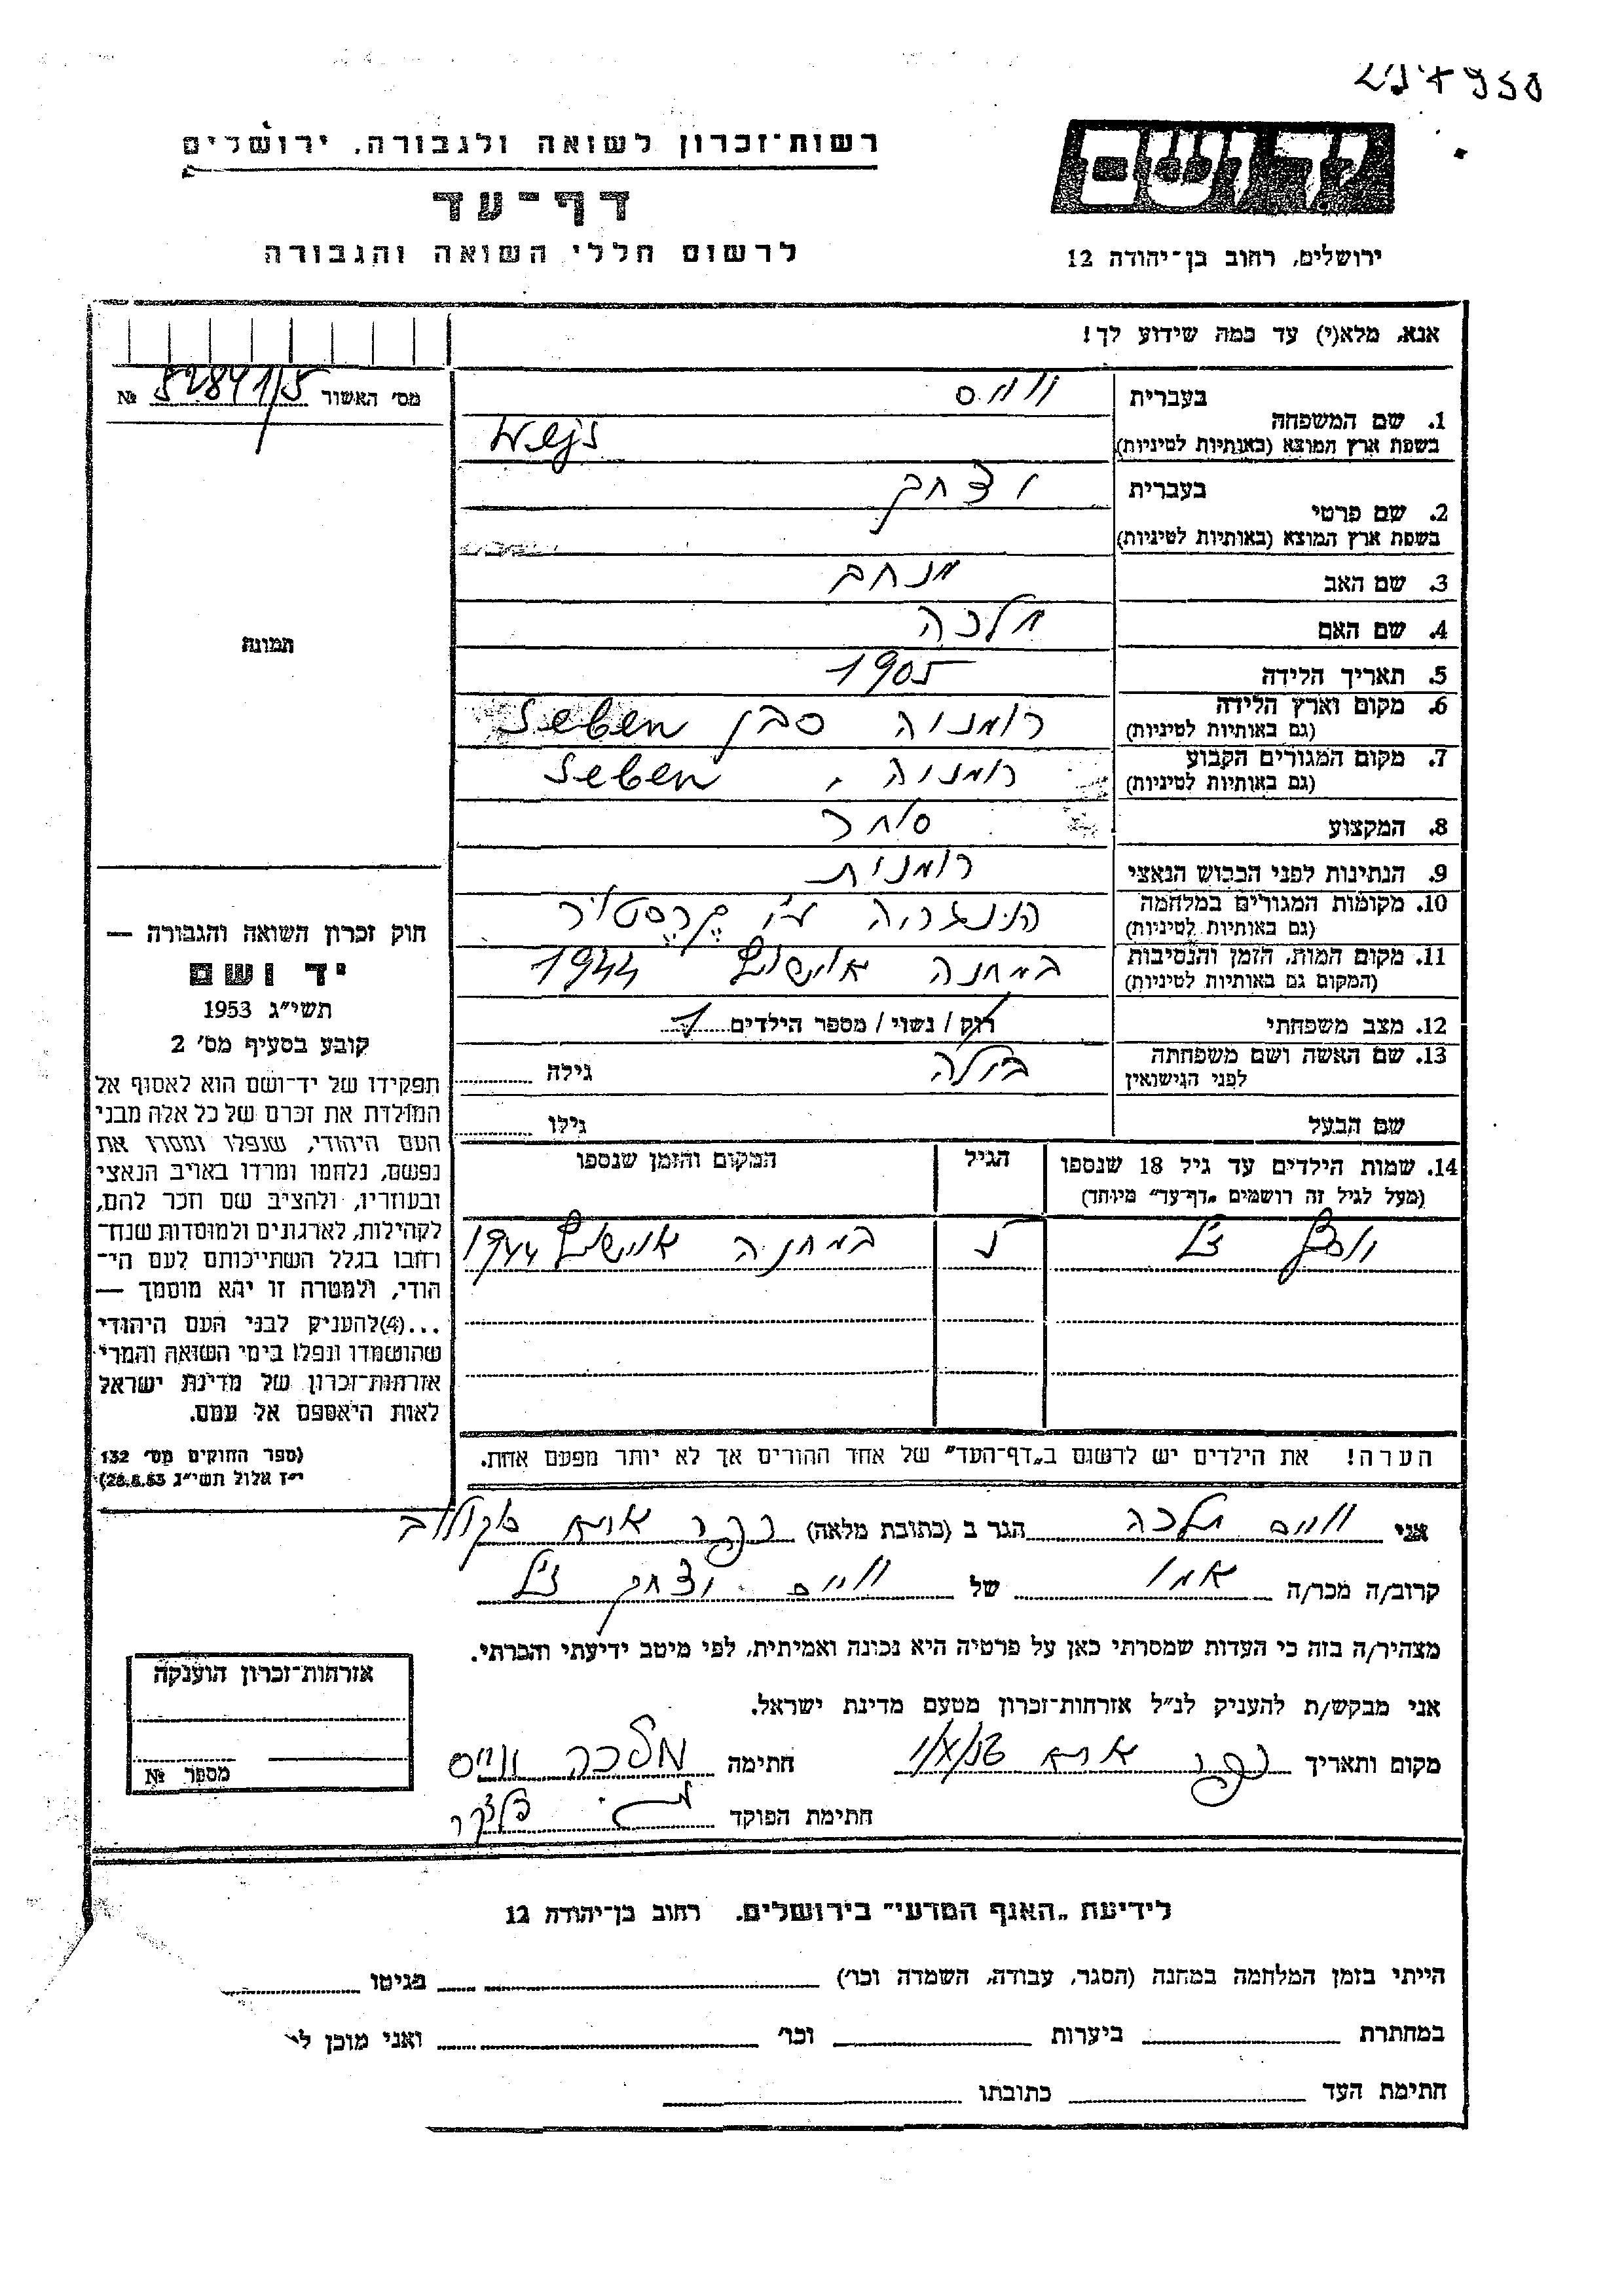 רשות־זכרון לשואה ולגבורה, ירושלים
דף־עד
לרשום חללי השואה והגבורה
ידושם
ירושלים, רחוב בן־יהודה 12
אנא, מלא(י) עד כמה שידוע לך!
מס׳ האשור 52841/5 №
בעברית וויס
1. שם המשפחה
בשפת ארץ המוצא (באותיות לטיניות) Wejs
בעברית יצחק
2. שם פרטי
בשפת ארץ המוצא (באותיות לטיניות)
3. שם האב מנחם
4. שם האם מלכה
5. תאריך הלידה 1905
6. מקום וארץ הלידה
(גם באותיות לטיניות) רומניה סבן Seben
7. מקום המגורים הקבוע
(גם באותיות לטיניות) רומניה, Seben
8. המקצוע סוחר
9. הנתינות לפני הכבוש הנאצי רומנית
10. מקומות המגורים במלחמה
(גם באותיות לטיניות) הונגריה
11. מקום המות, הזמן והנסיבות
(המקום גם באותיות לטיניות) במחנה אוישוץ 1944
12. מצב משפחתי רוק / נשוי / מספר הילדים 1
13. שם האשה ושם משפחתה
לפני הנישואין בילה גילה
שם הבעל גילו
14. שמות הילדים עד גיל 18 שנספו
(מעל לגיל זה רושמים „דף־עד״ מיוחד)
הגיל
המקום והזמן שנספו
ז״ל במחנה אוישוץ 1944
הערה! את הילדים יש לרשום ב„דף־העד״ של אחד ההורים אך לא יותר מפעם אחת.
תמונה
חוק זכרון השואה והגבורה —
יד ושם
תשי״ג 1953
קובע בסעיף מס׳ 2
תפקידו של יד־ושם הוא לאסוף אל
המולדת את זכרם של כל אלה מבני
העם היהודי, שנפלו ומסרו את
נפשם, נלחמו ומרדו באויב הנאצי
ובעוזריו, ולהציב שם וזכר להם,
לקהילות, לארגונים ולמוסדות שנח־
רבו בגלל השתייכותם לעם הי־
הודי, ולמטרה זו יהא מוסמך —
...(4)להעניק לבני העם היהודי
שהושמדו ונפלו בימי השואה והמרי
אזרחות־זכרון של מדינת ישראל
לאות היאספם אל עמם.
(ספר החוקים מס׳ 132
י״ז אלול תשי״ג 28.8.53)
אני וויס מלכה הגר ב (כתובת מלאה) כפר אתא
קרוב/ה מכר/ה אמו של וויס יצחק ז״ל
מצהיר/ה בזה כי העדות שמסרתי כאן על פרטיה היא נכונה ואמיתית, לפי מיטב ידיעתי והכרתי.
אני מבקש/ת להעניק לנ״ל אזרחות־זכרון מטעם מדינת ישראל.
מקום ותאריך כפר אתא חתימה מלכה ווייס
חתימת הפוקד
אזרחות־זכרון הוענקה
מספר №
לידיעת „האגף המדעי״ בירושלים, רחוב בן־יהודה 12
הייתי בזמן המלחמה במחנה (הסגר, עבודה, השמדה וכו׳) בגיטו
במחתרת ביערות וכו׳ ואני מוכן
חתימת העד כתובתו